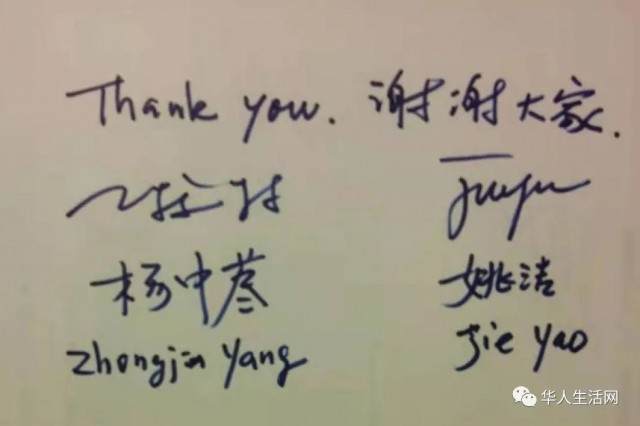 Thank you. 谢谢大家.
杨中荩 姚洁
Zhongjin Yang Jie Yao
华人生活网